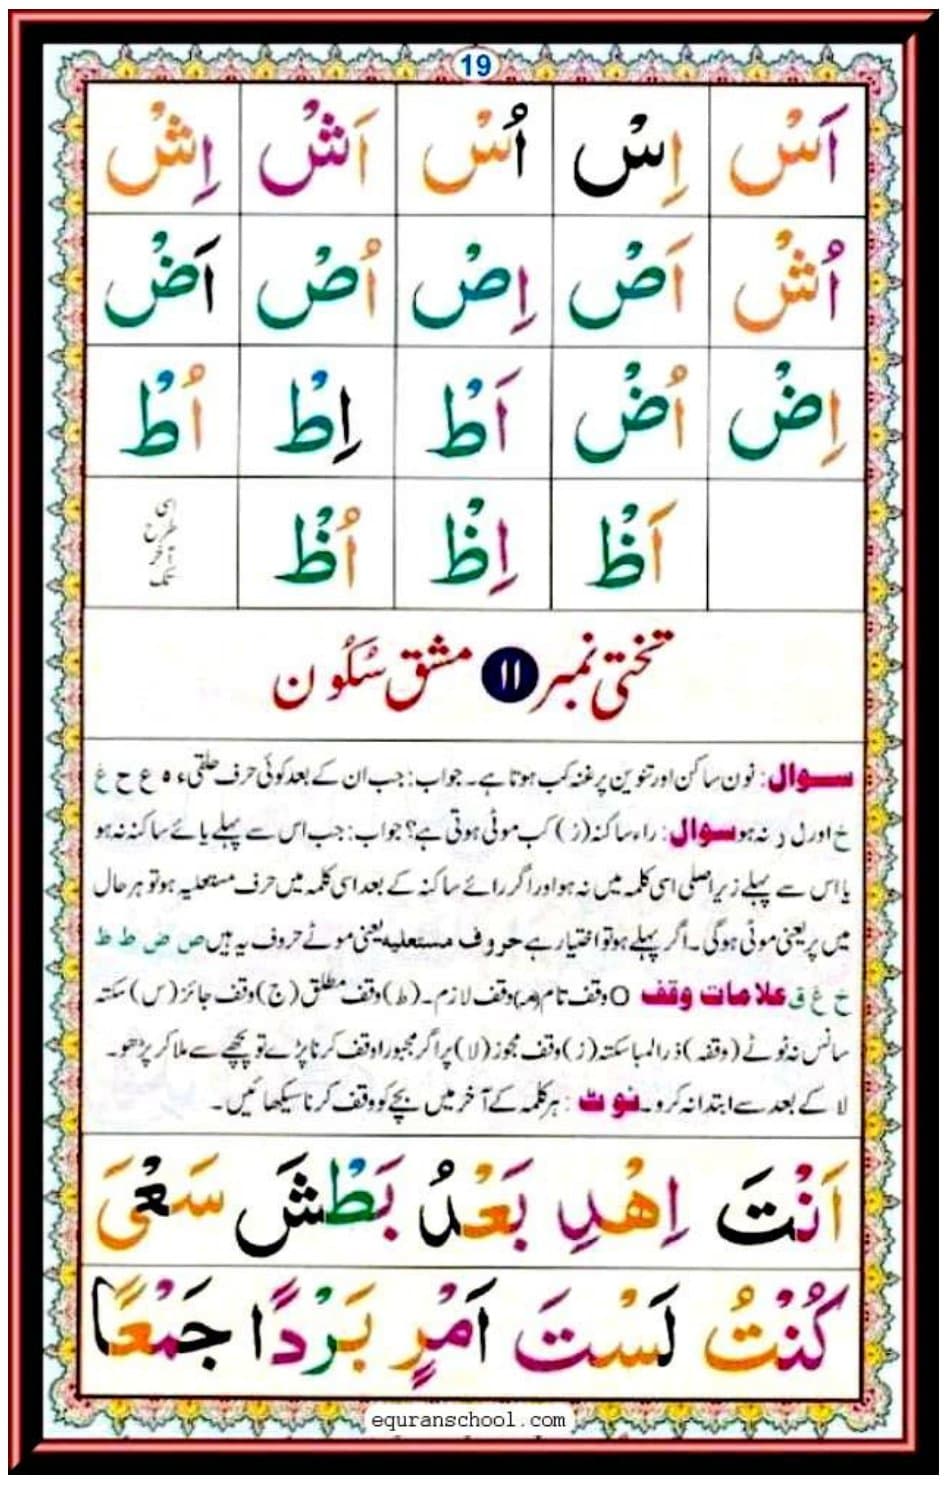 19
اَسْ اِسْ اُسْ اَشْ اِشْ
اُشْ اَصْ اِصْ اُصْ اَضْ
اِضْ اُضْ اَطْ اِطْ اُطْ
اَظْ اِظْ اُظْ اسی طرح آخر تک
تختی نمبر ۱۱ مشق سکُون
سوال: نون ساکن اور تنوین پر غنہ کب ہوتا ہے۔ جواب: جب ان کے بعد کوئی حرف حلقی ء ہ ع ح غ
خ اور ل ر نہ ہو سوال: راء ساکنہ (ر) کب موٹی ہوتی ہے؟ جواب: جب اس سے پہلے یائے ساکنہ نہ ہو
یا اس سے پہلے زیر اصلی اسی کلمہ میں نہ ہو اور اگر رائے ساکنہ کے بعد اسی کلمہ میں حرف مستعلیہ ہو تو ہر حال
میں پر یعنی موٹی ہوگی۔ اگر پہلے ہو تو اختیار ہے حروف مستعلیہ یعنی موٹے حروف یہ ہیں ص ض ط ظ
خ غ ق علامات وقف O وقف تام (مـ) وقف لازم۔ (ط) وقف مطلق (ج) وقف جائز (س) سکتہ
سانس نہ ٹوٹے (وقفہ) ذرا لمبا سکتہ (ز) وقف مجوز (لا) پر اگر مجبورا وقف کرنا پڑے تو پیچھے سے ملا کر پڑھو۔
لا کے بعد سے ابتدا نہ کرو۔ نوٹ: ہر کلمہ کے آخر میں بچے کو وقف کرنا سیکھائیں۔
اَنْتَ اِهْدِ بَعْدُ بَطْشَ سَعْیَ
كُنْتُ لَسْتَ اَمْرٍ بَرْدًا جَمْعًا
equranschool.com